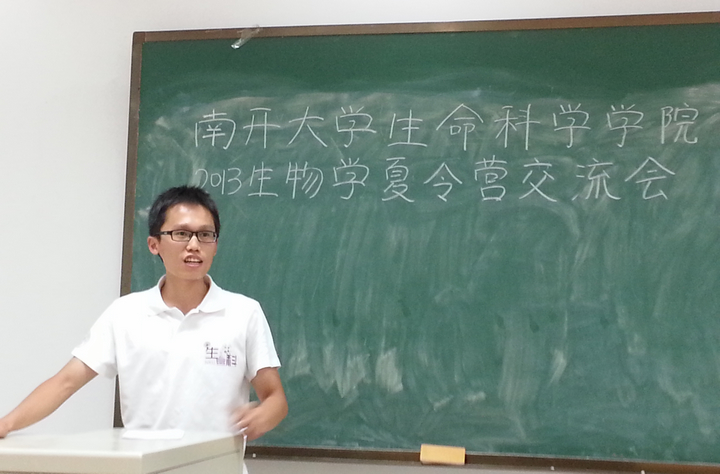 南开大学生命科学学院
2013生物学夏令营交流会